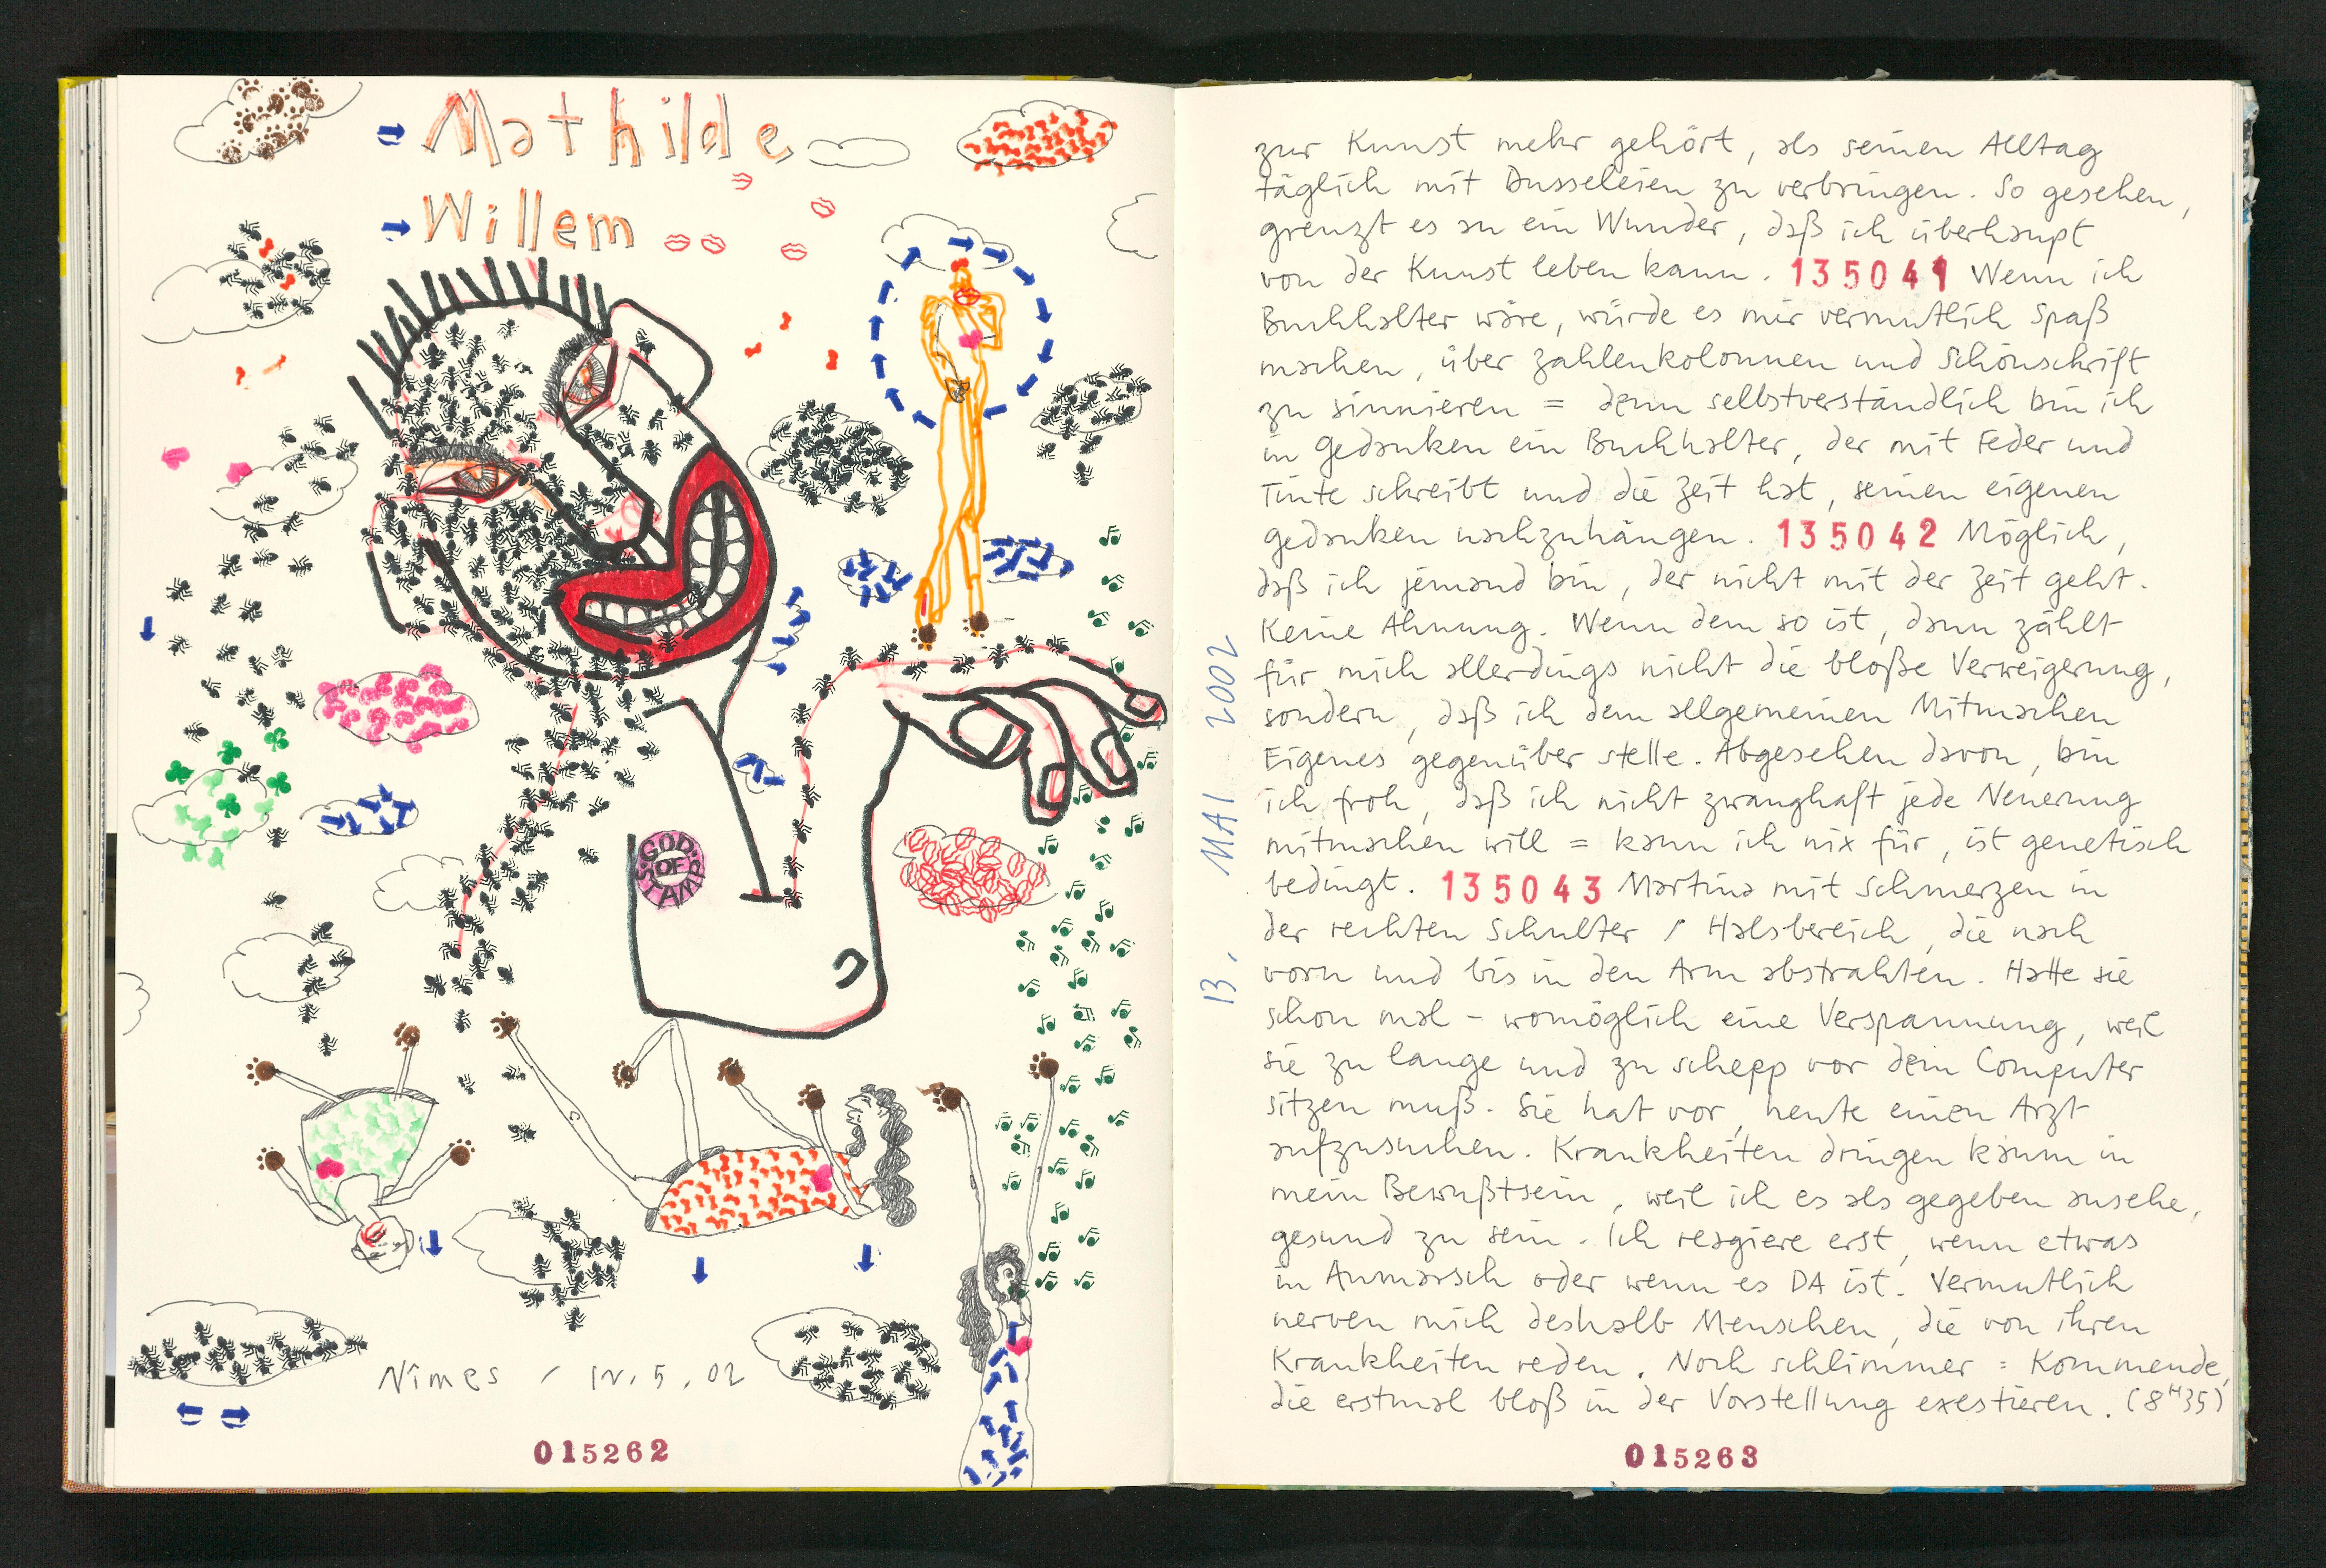 Mathilde
Willem
GOD
OF
STAMPS
Nîmes / 12.5.02
015262
13. MAI 2002
zur Kunst mehr gehört, als seinen Alltag
täglich mit Dusseleien zu verbringen. So gesehen,
grenzt es an ein Wunder, daß ich überhaupt
von der Kunst leben kann. 135041 Wenn ich
Buchhalter wäre, würde es mir vermutlich Spaß
machen, über Zahlenkolonnen und Schönschrift
zu sinnieren = denn selbstverständlich bin ich
in Gedanken ein Buchhalter, der mit Feder und
Tinte schreibt und die Zeit hat, seinen eigenen
Gedanken nachzuhängen. 135042 Möglich,
daß ich jemand bin, der nicht mit der Zeit geht.
Keine Ahnung. Wenn dem so ist, dann zählt
für mich allerdings nicht die bloße Verweigerung,
sondern, daß ich dem allgemeinen Mitmachen
Eigenes gegenüber stelle. Abgesehen davon, bin
ich froh, daß ich nicht zwanghaft jede Neuerung
mitmachen will = kann ich nix für, ist genetisch
bedingt. 135043 Martina mit Schmerzen in
der rechten Schulter / Halsbereich, die nach
vorn und bis in den Arm abstrahlten. Hatte sie
schon mal – womöglich eine Verspannung, weil
sie zu lange und zu schepp vor dem Computer
sitzen muß. Sie hat vor, heute einen Arzt
aufzusuchen. Krankheiten dringen kaum in
mein Bewußtsein, weil ich es als gegeben ansehe,
gesund zu sein. Ich reagiere erst, wenn etwas
in Anmarsch oder wenn es DA ist. Vermutlich
nerven mich deshalb Menschen, die von ihren
Krankheiten reden. Noch schlimmer = Kommende,
die erstmal bloß in der Vorstellung exestieren. (8H35)
015263